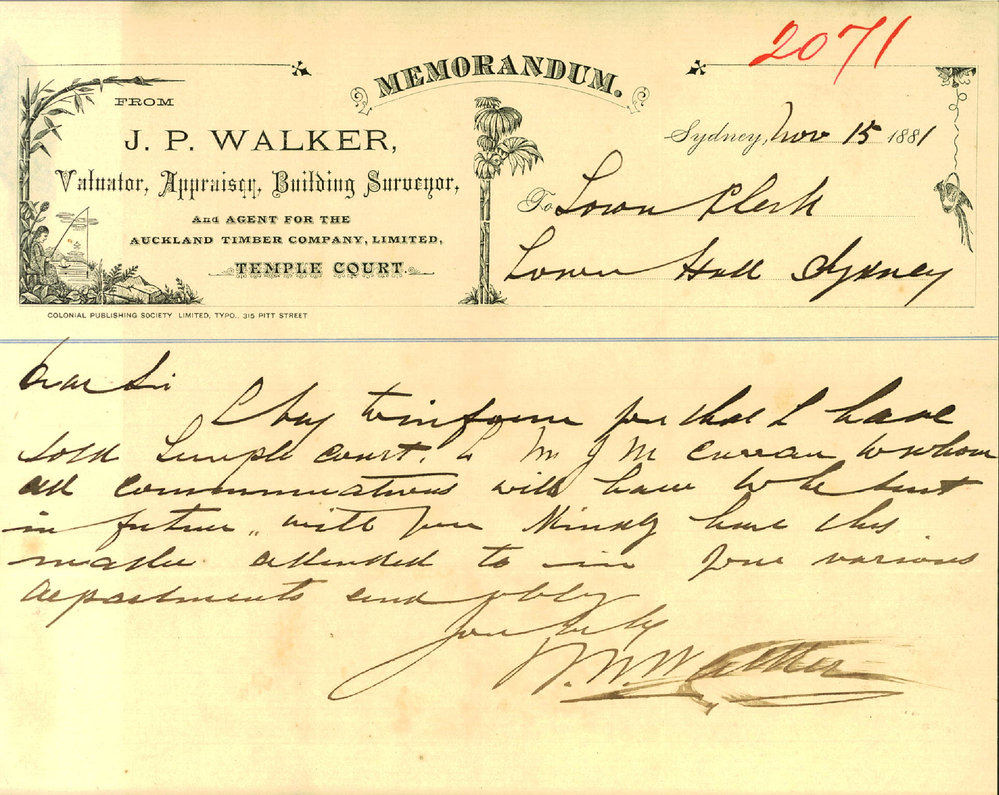 2071
MEMORANDUM.
FROM
J. P. WALKER,
Valuator, Appraiser, Building Surveyor,
And AGENT FOR THE
AUCKLAND TIMBER COMPANY, LIMITED,
TEMPLE COURT.
COLONIAL PUBLISHING SOCIETY LIMITED, TYPO., 315 PITT STREET
Sydney, Nov 15 1881
To Town Clerk
Town Hall Sydney
Dear Sir
I beg to inform you that I have
sold Temple court. to Mr J M Curran to whom
all communications will have to be sent
in future, will you kindly have this
matter attended to in your various
departments and oblige
Yours truly
Walker